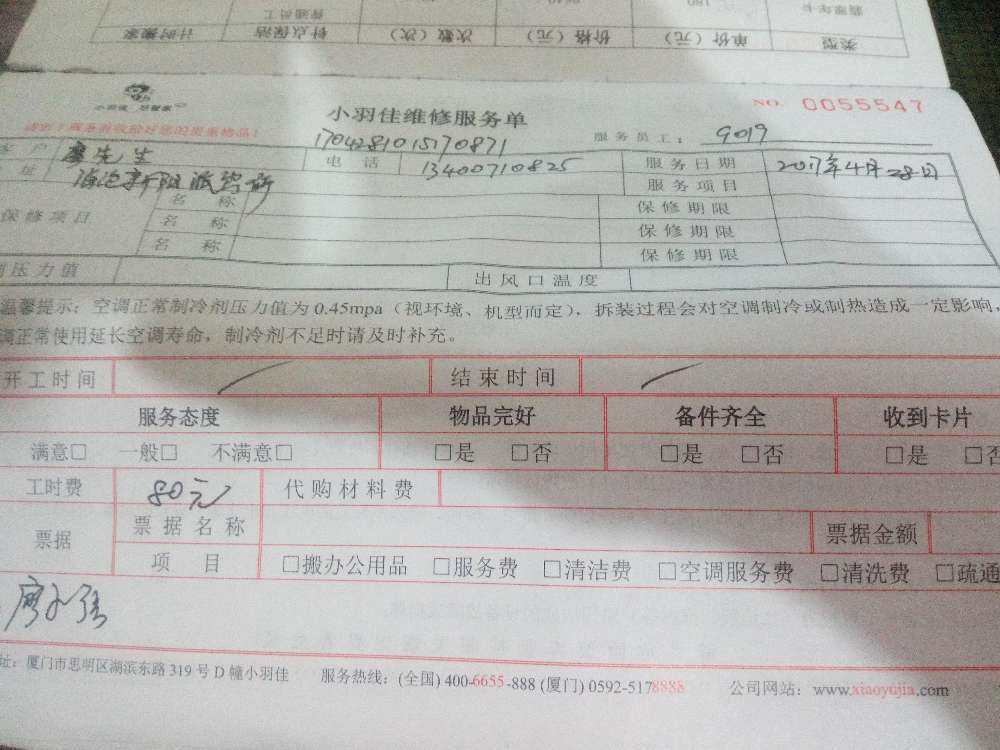 类型 单价（元） 价格（元） 次数（次） 钟点保洁 计时搬家
180
普通员工
小羽佳维修服务单
NO. 0055547
1704281015170871
服务员工： 9019
客户 廖先生 电话 13400710825 服务日期 2017年4月28日
址 海沧新阳派出所 服务项目
保修项目 名称 保修期限
名称 保修期限
名称 保修期限
压力值 出风口温度
温馨提示：空调正常制冷剂压力值为 0.45mpa（视环境、机型而定），拆装过程会对空调制冷或制热造成一定影响，
调正常使用延长空调寿命，制冷剂不足时请及时补充。
开工时间 结束时间
服务态度 物品完好 备件齐全 收到卡片
满意□ 一般□ 不满意□ □是 □否 □是 □否 □是 □否
工时费 80元 代购材料费
票据 票据名称 票据金额
项目 □搬办公用品 □服务费 □清洁费 □空调服务费 □清洗费 □疏通
址：厦门市思明区湖滨东路 319 号 D 幢小羽佳 服务热线：(全国) 400-6655-888 (厦门) 0592-5178888 公司网站：www.xiaoyujia.com